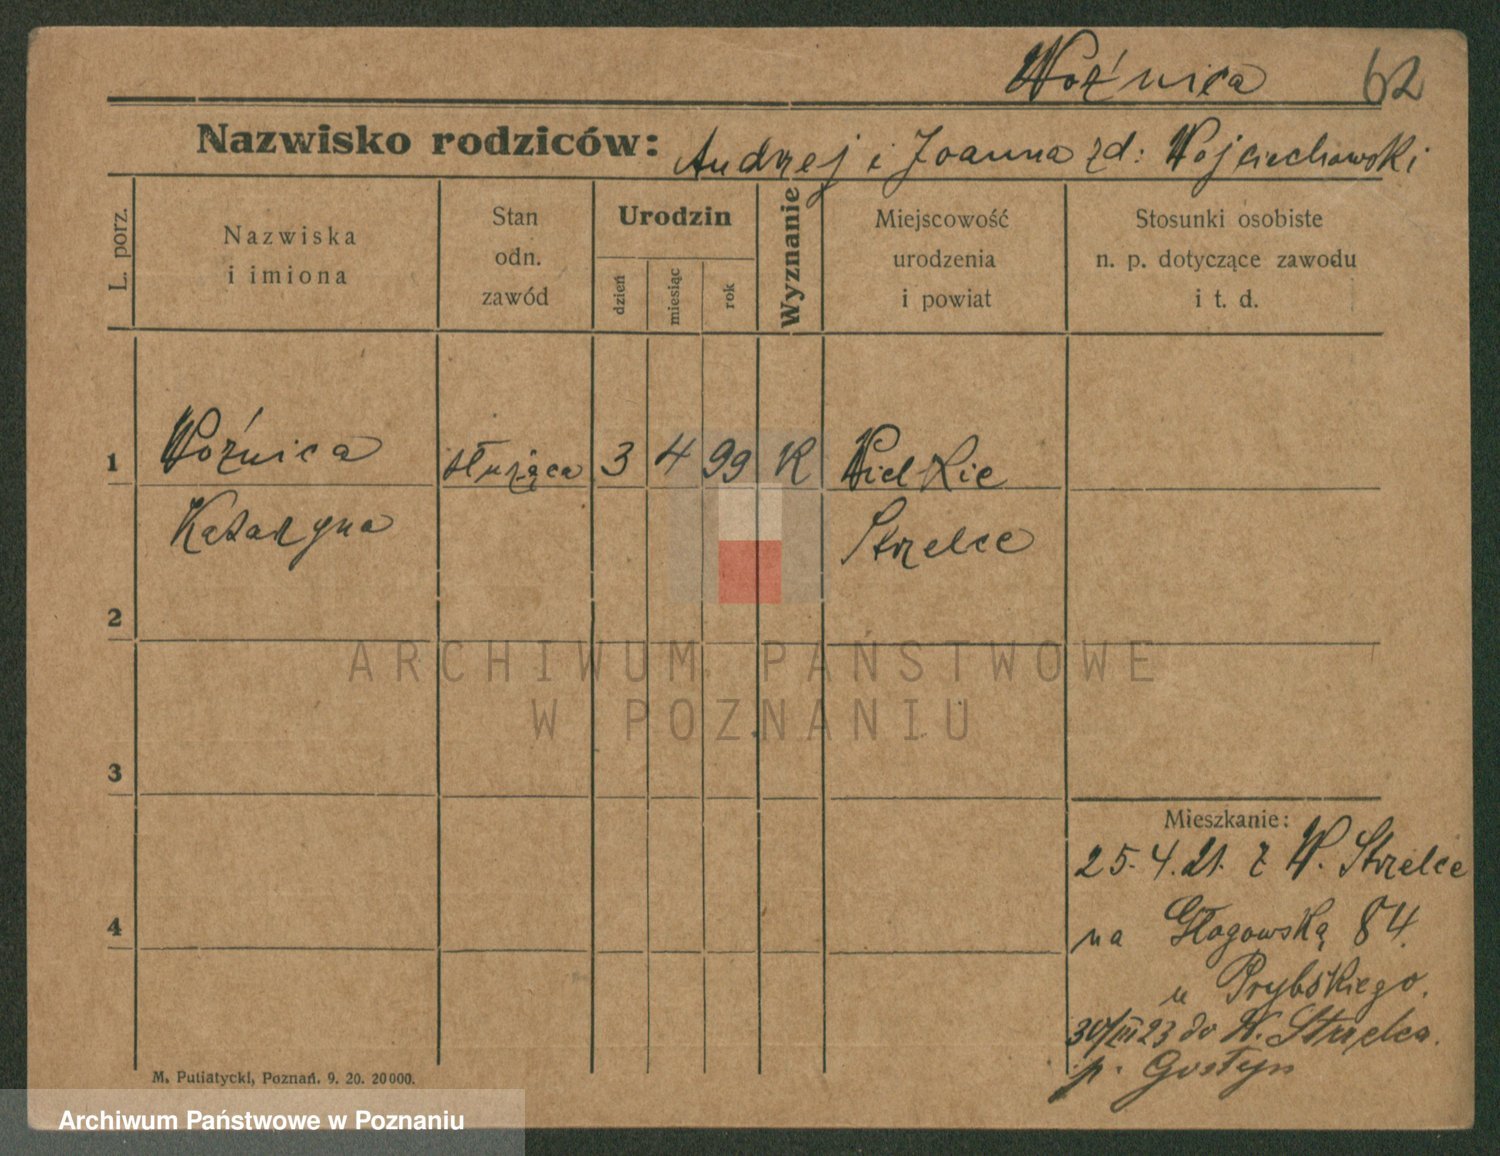 Woźnica 62
Nazwisko rodziców: Andrzej i Joanna zd: Wojciechowski
L. porz.
Nazwiska
i imiona
Stan
odn.
zawód
Urodzin
dzień
miesiąc
rok
Wyznanie
Miejscowość
urodzenia
i powiat
Stosunki osobiste
n. p. dotyczące zawodu
i t. d.
1 Woźnica służąca 3 4 99 K Wielkie
Katarzyna Strzelce
2
ARCHIWUM PAŃSTWOWE
W POZNANIU
3
Mieszkanie:
25.4.21. z W. Strzelce
4
na Głogowską 84.
u Prybskiego.
30/III 23 do W. Strzelca.
p. Gostyn
M. Putiatycki, Poznań. 9. 20. 20000.
Archiwum Państwowe w Poznaniu